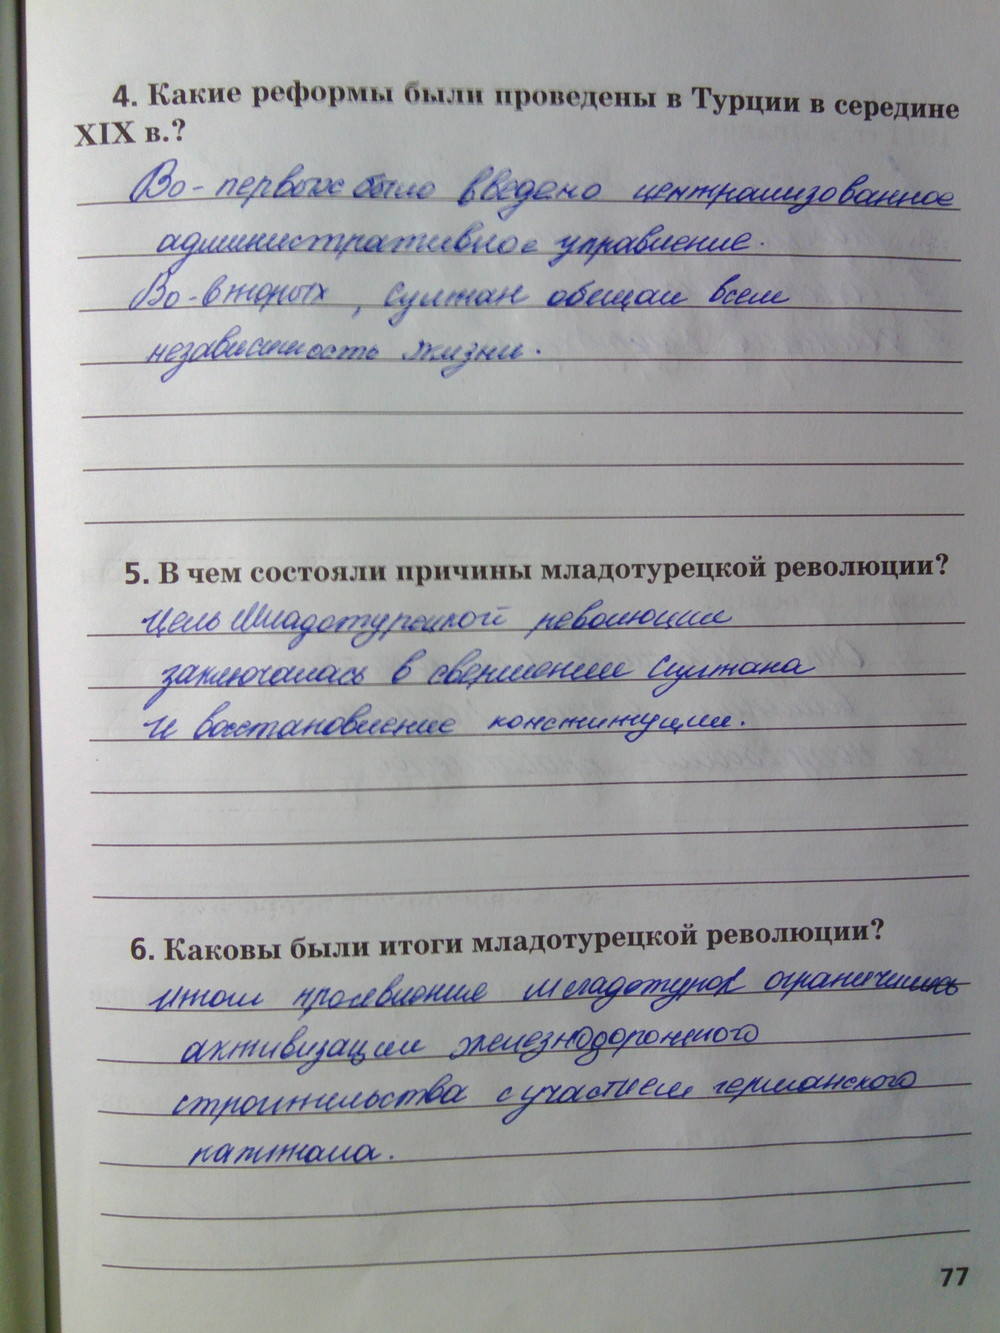 4. Какие реформы были проведены в Турции в середине
XIX в.?
Во-первых было введено централизованное
административное управление.
Во-вторых, султан обещал всем
независимость жизни.
5. В чем состояли причины младотурецкой революции?
Цель Младотурецкой революции
заключалась в свержении Султана
и восстановление конституции.
6. Каковы были итоги младотурецкой революции?
итоги младотурок
активизации железнодорожного
строительства с участием германского
капитала.
77